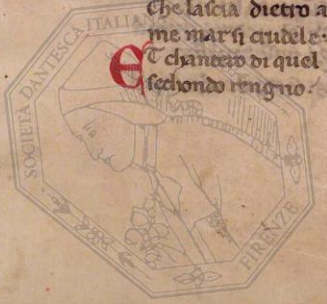 Che lascia dietro a
me mar si crudele·
ET chantero di quel
sechondo rengno·
SOCIETÀ DANTESCA ITALIANA
FIRENZE